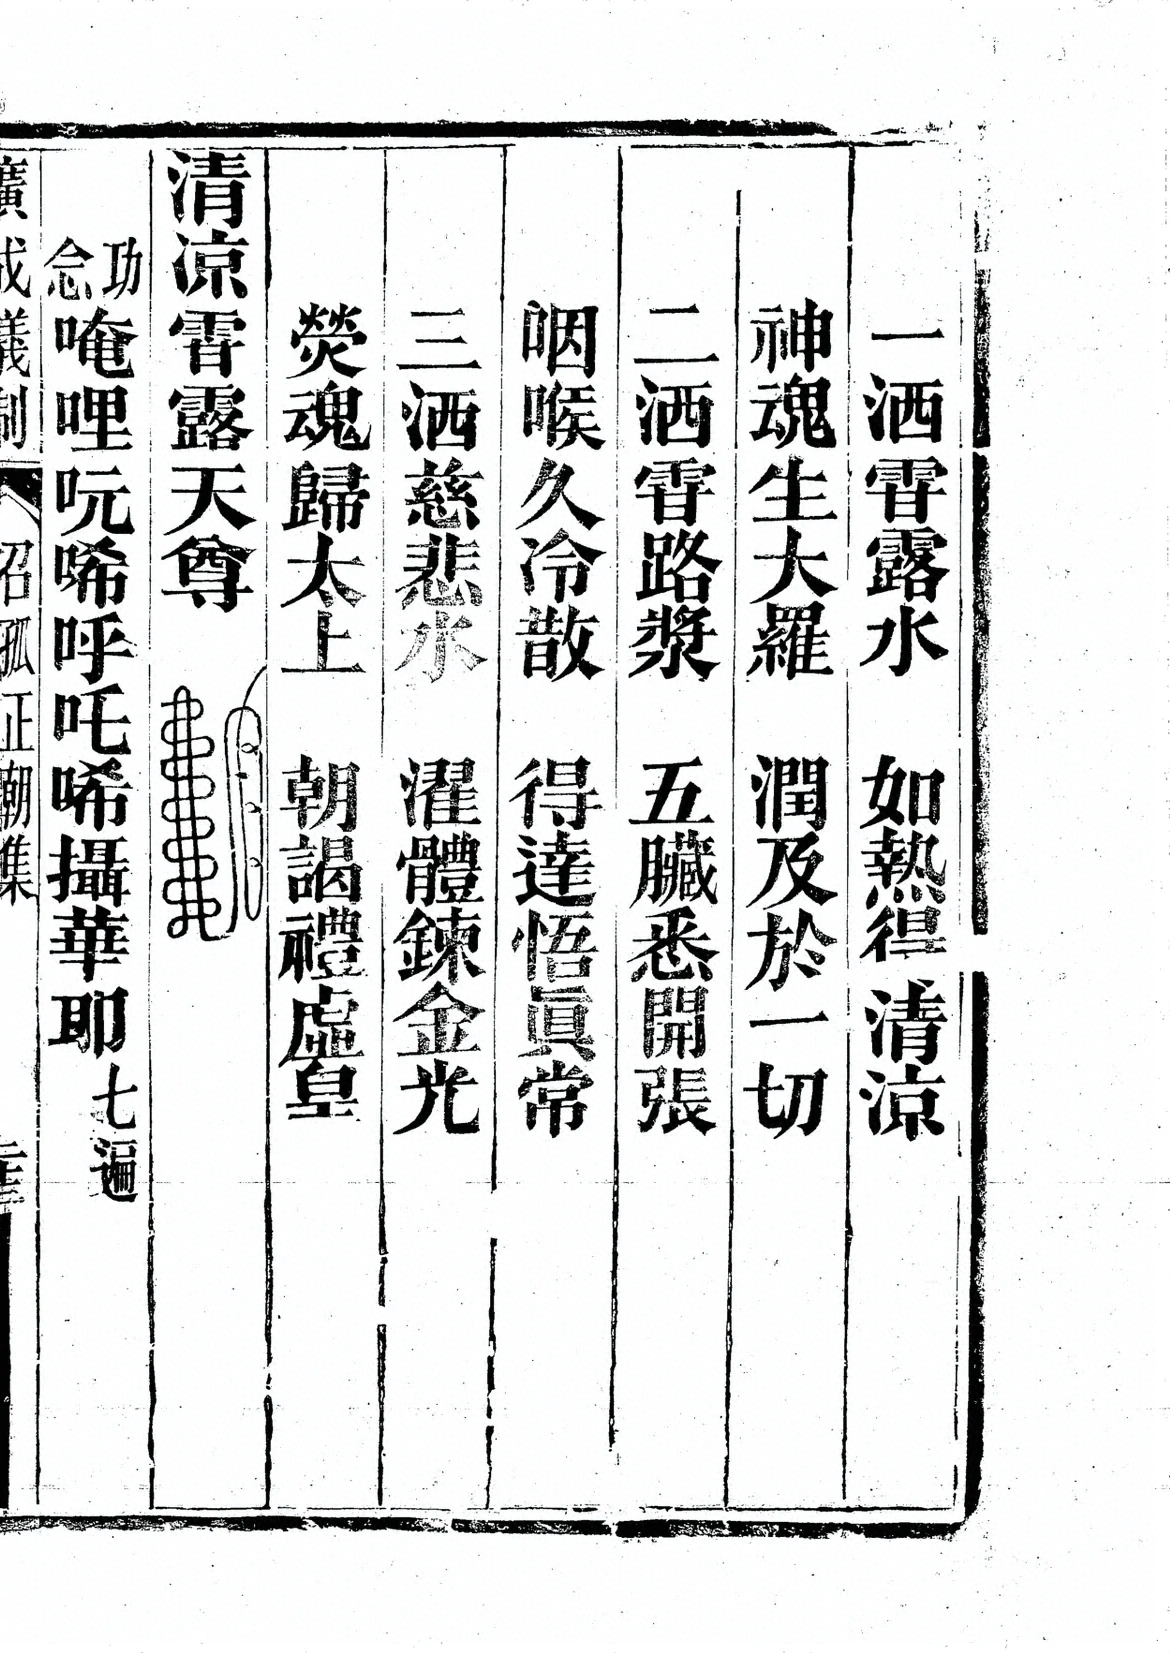 一洒霅露水　如熱得清涼
神魂生大羅　潤及於一切
二洒霅路漿　五臟悉開張
咽喉久冷散　得達悟眞常
三洒慈悲水　濯體鍊金光
熒魂歸太上　朝謁禮虛皇
清涼霅露天尊
功念唵哩吭唏呼吒唏攝華耶七遍
廣成儀制　招孤正朝集